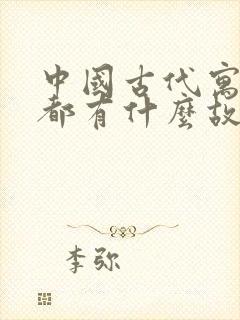 中國古代寓
都有什麼故
李弥